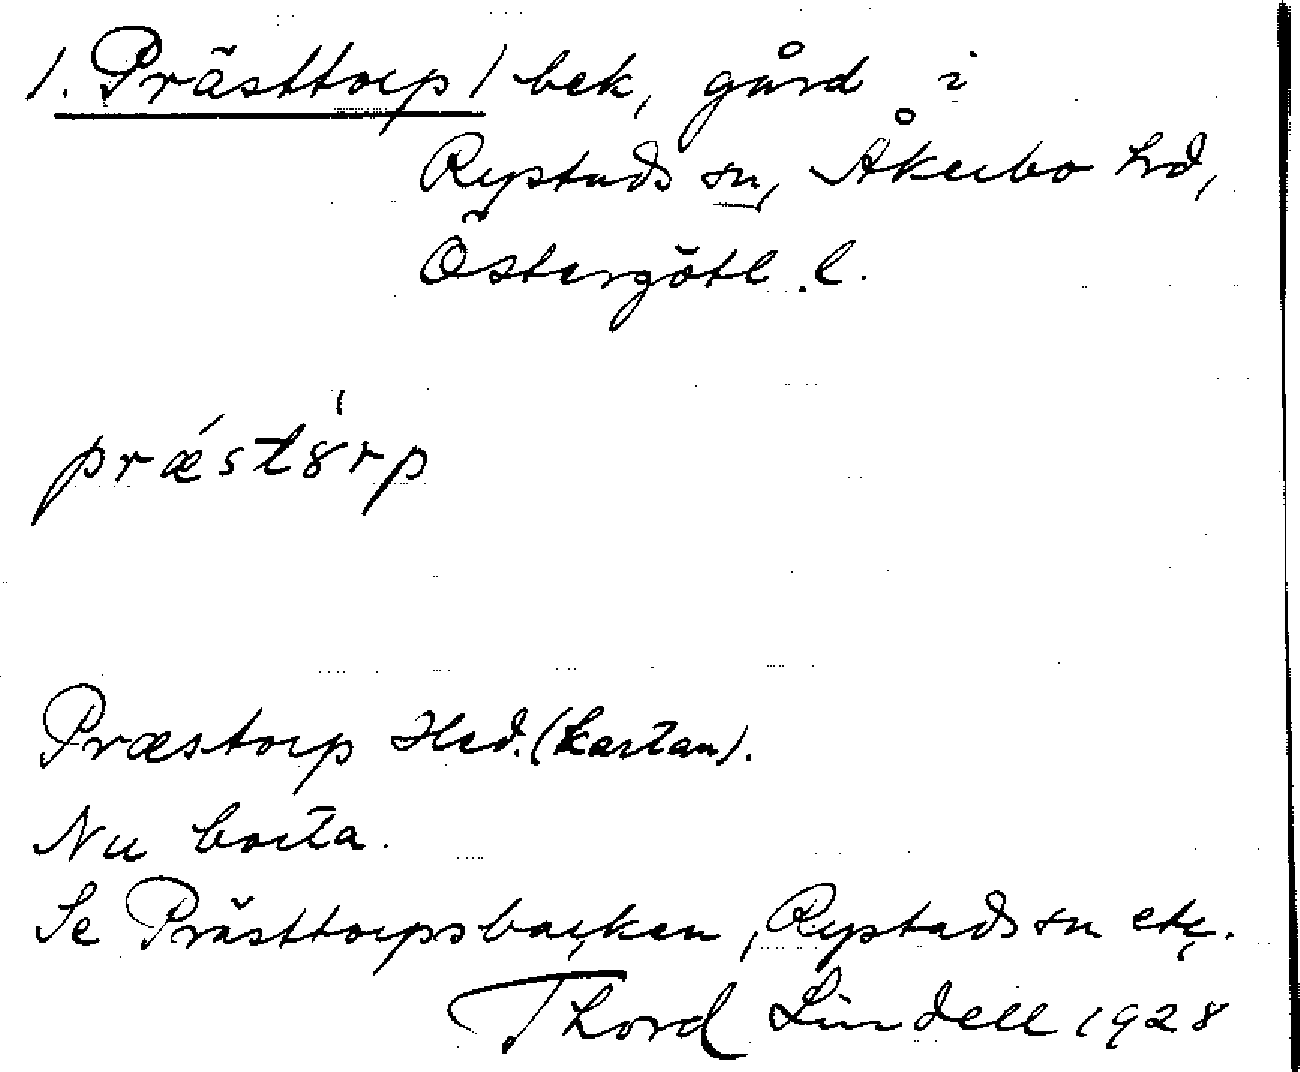 1. Prästtorp / bek, gård i
Rystads sn, Åkerbo hd,
Östergötl. l.
præ´st8̍rp
Præstorp Hed. (kartan).
Nu borta.
Se Prästtorpsbacken, Rystads sn etc.
Thord Lindell 1928